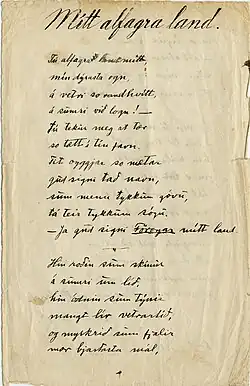 Mitt alfagra land.
Tú alfagra land mitt,
mín dýrasta ogn,
á vetri so randhvitt,
á sumri við logn! —
tú tekur meg at tær
so tætt i tin favn.
Tit oyggjar so mætar
gud signi tað navn,
sum menn tykkum góvu,
tá teir tykkum sógu.
— Ja gud signi Föroyar mitt land
Hin roðin sum skinur
á sumri um lið,
hin sum týnir
mangt liv vetrartið,
og myrkrið sum fjalir
mær bjartasta mál,